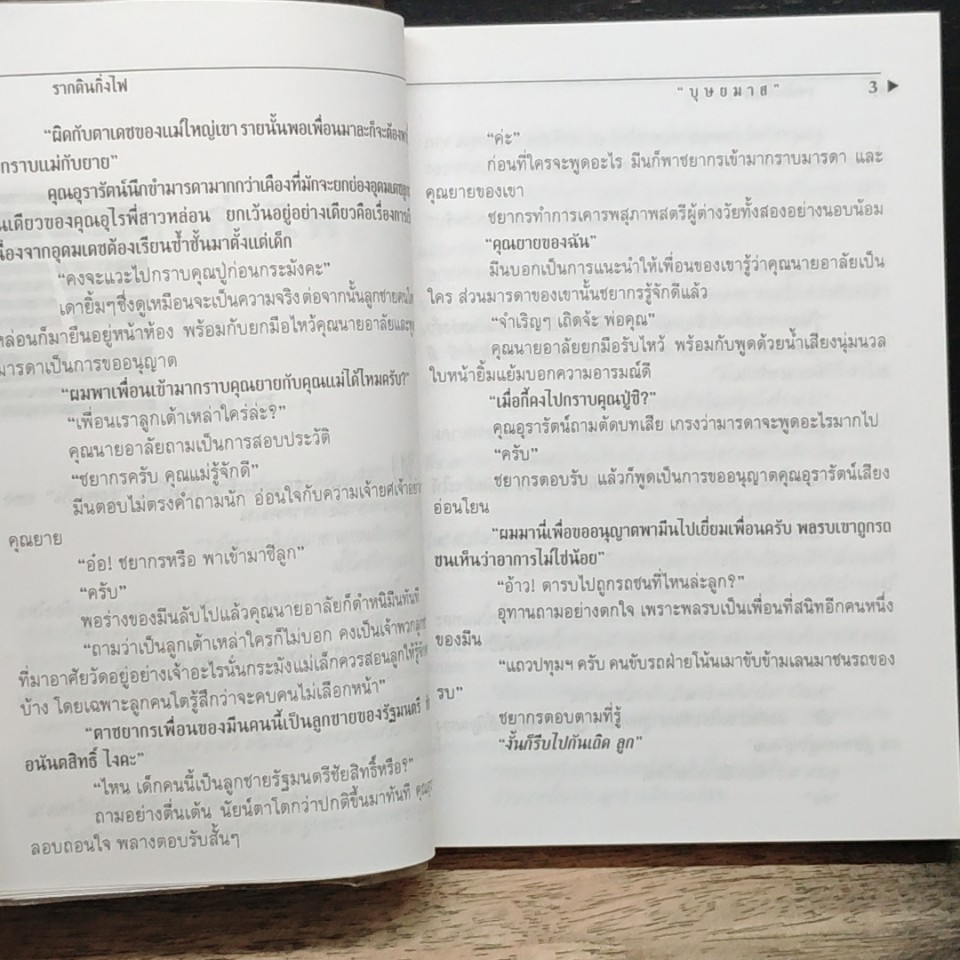 รากดินกิ่งไฟ
“ผิดกับตาเดชของแม่ใหญ่เขา รายนั้นพอเพื่อนมาละก็จะต้อง
กราบแม่กับยาย”
คุณอุรารัตน์นึกขำมารดามากกว่าเคืองที่มักจะยกย่องอุดมเดช
นเดียวของคุณอุไรพี่สาวหล่อน ยกเว้นอยู่อย่างเดียวคือเรื่อง
นื่องจากอุดมเดชต้องเรียนซ้ำชั้นมาตั้งแต่เด็ก
“คงจะแวะไปกราบคุณปู่ก่อนกระมังคะ”
เดายิ้มๆซึ่งดูเหมือนจะเป็นความจริง ต่อจากนั้นลูกชาย
หล่อนก็มายืนอยู่หน้าห้อง พร้อมกับยกมือไหว้คุณนายอาลัยและ
มารดาเป็นการขออนุญาต
“ผมพาเพื่อนเข้ามากราบคุณยายกับคุณแม่ได้ไหมครับ?”
“เพื่อนเราลูกเต้าเหล่าใครล่ะ?”
คุณนายอาลัยถามเป็นการสอบประวัติ
“ชยากรครับ คุณแม่รู้จักดี”
มีนตอบไม่ตรงคำถามนัก อ่อนใจกับความเจ้ายศเจ้า
คุณยาย
“อ๋อ! ชยากรหรือ พาเข้ามาซีลูก”
“ครับ”
พอร่างของมีนลับไปแล้วคุณนายอาลัยก็ตำหนิมีนทันที
“ถามว่าเป็นลูกเต้าเหล่าใครก็ไม่บอก คงเป็นเจ้าพวก
ที่มาอาศัยวัดอยู่อย่างเจ้าอะไรนั่นกระมังแม่เล็กควรสอนลูกให้รู้
บ้าง โดยเฉพาะลูกคนโตรู้สึกว่าจะคบคนไม่เลือกหน้า”
“ตาชยากรเพื่อนของมีนคนนี้เป็นลูกชายของรัฐมนตรี
อนันตสิทธิ์ ไงคะ”
“ไหน เด็กคนนี้เป็นลูกชายรัฐมนตรีชัยสิทธิ์หรือ?”
ถามอย่างตื่นเต้น นัยน์ตาโตกว่าปกติขึ้นมาทันที
ลอบถอนใจ พลางตอบรับสั้นๆ
“บุษยมาส” 3 ▶
“ค่ะ”
ก่อนที่ใครจะพูดอะไร มีนก็พาชยากรเข้ามากราบมารดา และ
คุณยายของเขา
ชยากรทำการเคารพสุภาพสตรีผู้ต่างวัยทั้งสองอย่างนอบน้อม
“คุณยายของฉัน”
มีนบอกเป็นการแนะนำให้เพื่อนของเขารู้ว่าคุณนายอาลัยเป็น
ใคร ส่วนมารดาของเขานั้นชยากรรู้จักดีแล้ว
“จำเริญๆ เถิดจ้ะ พ่อคุณ”
คุณนายอาลัยยกมือรับไหว้ พร้อมกับพูดด้วยน้ำเสียงนุ่มนวล
ใบหน้ายิ้มแย้มบอกความอารมณ์ดี
“เมื่อกี้คงไปกราบคุณปู่ซิ?”
คุณอุรารัตน์ถามตัดบทเสีย เกรงว่ามารดาจะพูดอะไรมากไป
“ครับ”
ชยากรตอบรับ แล้วก็พูดเป็นการขออนุญาตคุณอุรารัตน์เสียง
อ่อนโยน
“ผมมานี่เพื่อขออนุญาตพามีนไปเยี่ยมเพื่อนครับ พลรบเขาถูกรถ
ชนเห็นว่าอาการไม่ใช่น้อย”
“อ้าว! ตารบไปถูกรถชนที่ไหนล่ะลูก?”
อุทานถามอย่างตกใจ เพราะพลรบเป็นเพื่อนที่สนิทอีกคนหนึ่ง
ของมีน
“แถวปทุมฯ ครับ คนขับรถฝ่ายโน้นเมาขับข้ามเลนมาชนรถของ
รบ”
ชยากรตอบตามที่รู้
“งั้นก็รีบไปกันเถิด ลูก”